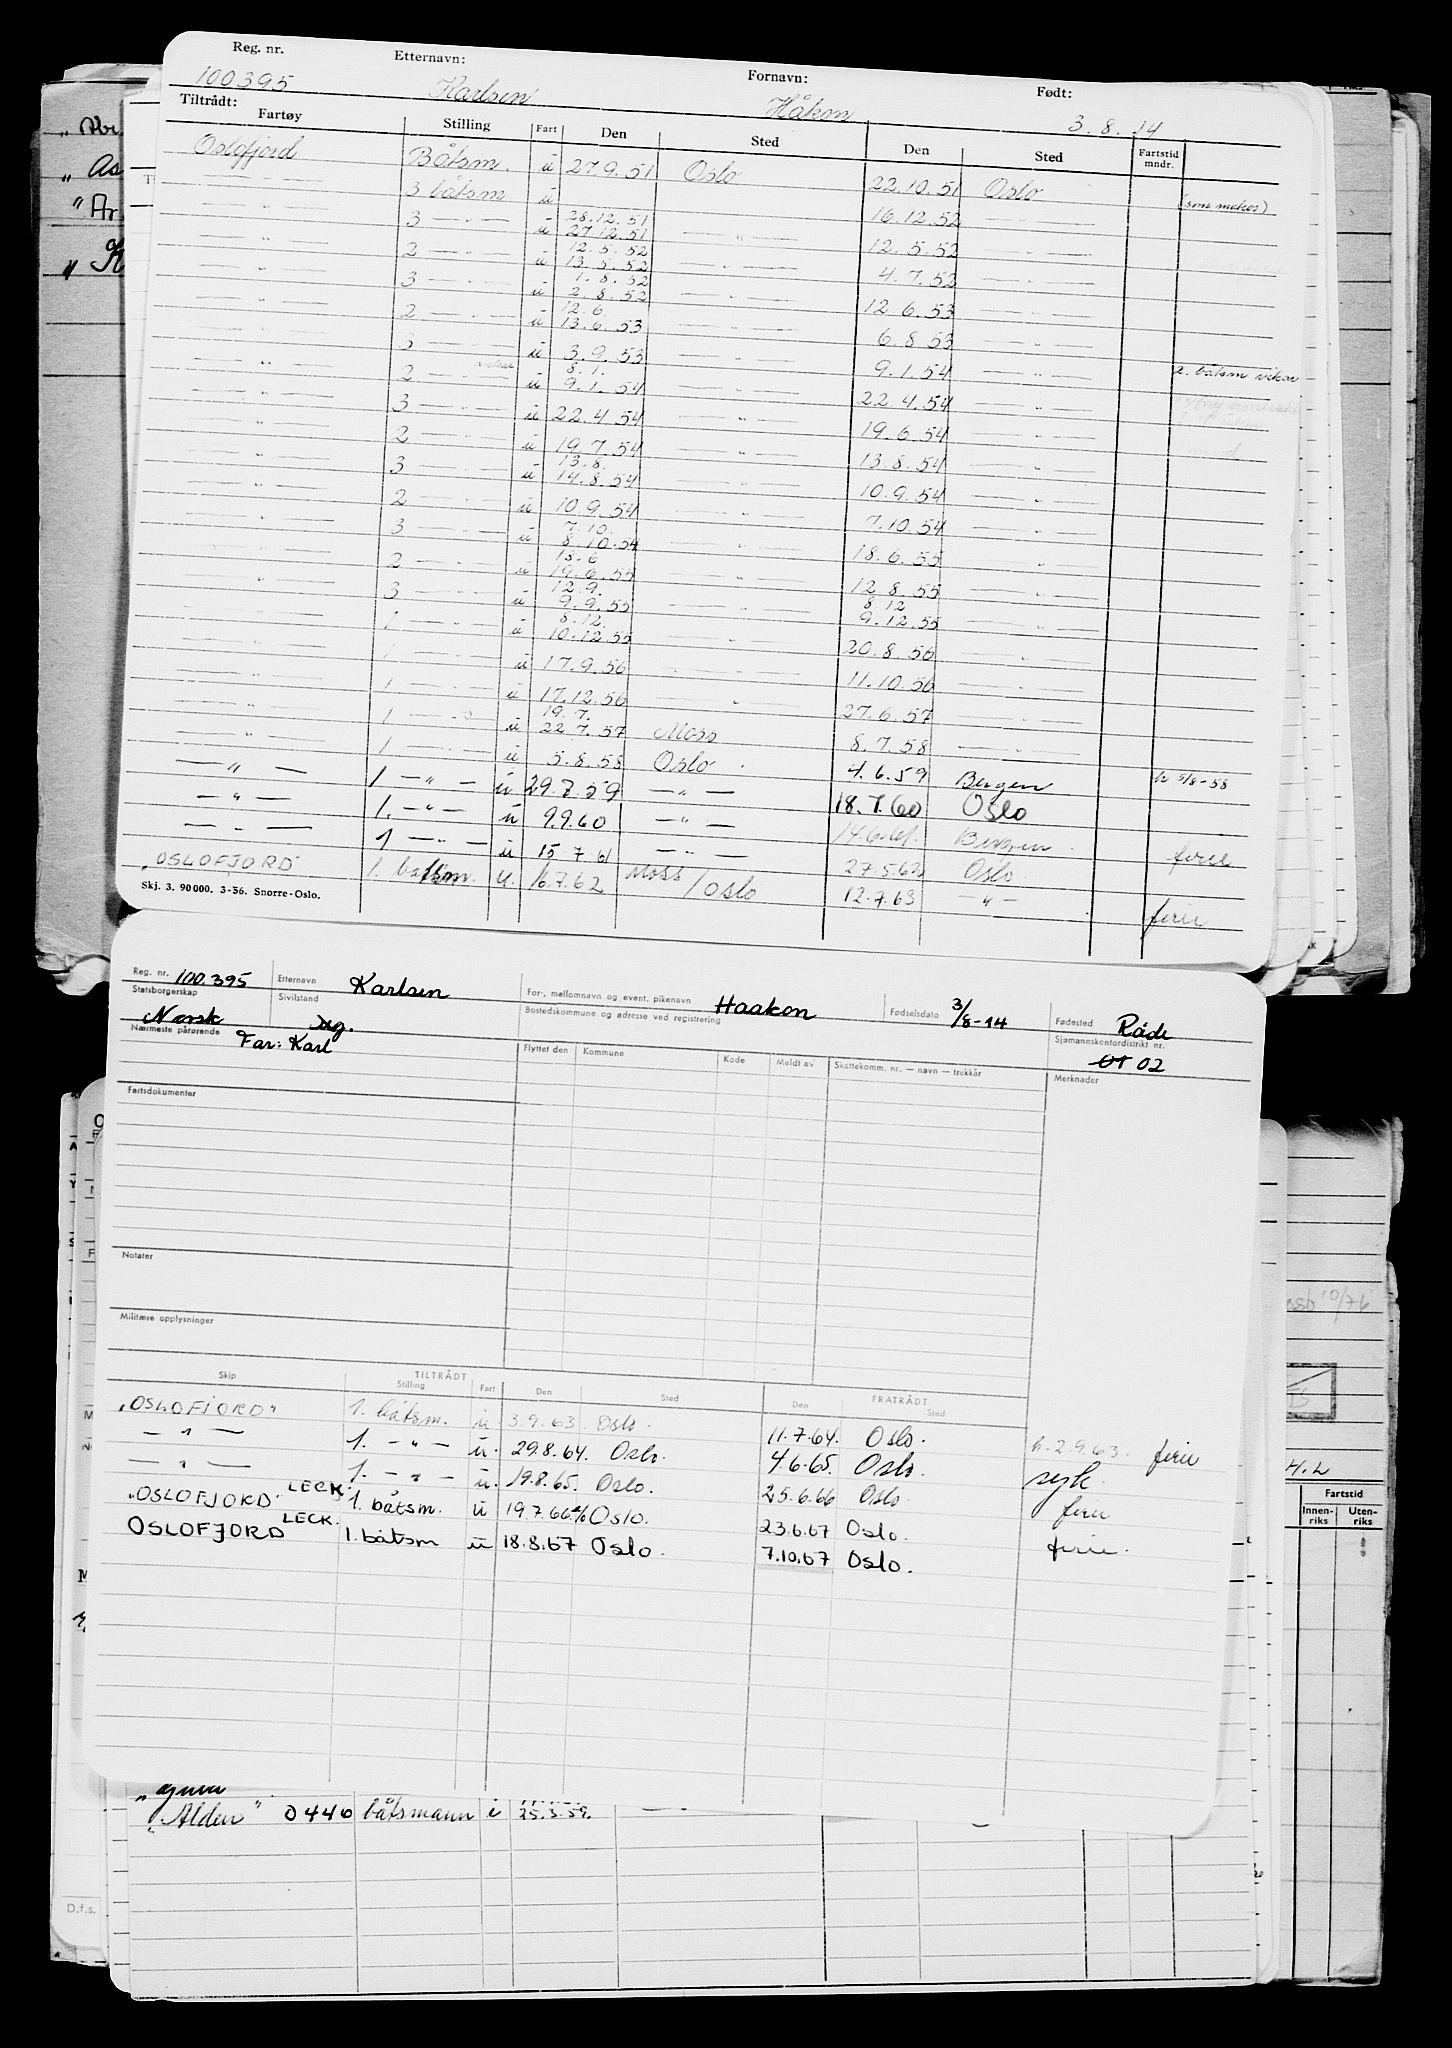 Reg. nr. Etternavn: Fornavn: Født:
100395 Karlsen Håkon 3.8.14
Tiltrådt:
Fartøy Stilling Fart Den Sted Den Sted Fartstid mndr.
Oslofjord Båtsm. u 27.9.51 Oslo 22.10.51 Oslo
— " — 3 båtsm u 28.12.51 16.12.52 — (som matros)
— " — 3 — " — u 27.12.51 — " — 12.5.52 — " —
12.5.52
— " — 2 — " — u 13.5.52 — " — 4.7.52 — " —
1.8.52
— " — 3 — " — u 2.8.52 — " — 12.6.53 — " —
12.6.
— " — 2 — " — u 13.6.53 — " — 6.8.53 — " —
— " — 3 — " — u 3.9.53 — " — 9.1.54 — " — 2. båtsm vikar
8.1.
— " — 2 — " — vikar u 9.1.54 — " — 22.4.54 — " —
— " — 3 — " — u 22.4.54 — " — 19.6.54 — " —
— " — 2 — " — u 19.7.54 — " — 13.8.54 — " —
13.8.
— " — 3 — " — u 14.8.54 — " — 10.9.54 — " —
— " — 2 — " — u 10.9.54 — " — 7.10.54 — " —
7.10.
— " — 3 — " — u 8.10.54 — " — 18.6.55 — " —
18.6
— " — 2 — " — u 19.6.55 — " — 12.8.55 — " —
12.9. 8.12
— " — 3 — " — u 9.9.55 — " — 9.12.55 — " —
8.12.
— " — 1 — " — u 10.12.55 — " — 20.8.56 — " —
— " — 1 — " — u 17.9.56 — " — 11.10.56 — " —
— " — 1 — " — u 17.12.56 — " — 27.6.57 — " —
19.7.
— " — 1 — " — u 22.7.57 Moss 8.7.58 — " —
— " — 1 — " — u 5.8.58 Oslo. 4.6.59 Bergen h 5/8-58
— " — 1 — " — u 29.8.59 — " — 18.7.60 Oslo
— " — 1. — " — u 9.9.60 — " — 14.6.61. Bergen.
— " — 1 — " — u 15.7.61 — " — 27.5.62 Oslo. ferie
"OSLOFJORD" 1. båtsm. u. 16.7.62 Moss/Oslo 12.7.63 — " — ferie
Skj. 3. 90000. 3-56. Snorre-Oslo.
Reg. nr. 100.395 Etternavn Karlsen For-, mellomnavn og event. pikenavn Haakon Fødselsdato 3/8-14 Fødested Råde
Statsborgerskap Norsk Sivilstand Ug. Bostedskommune og adresse ved registrering Sjømannskontordistrikt nr. 01 02
Nærmeste pårørende Far: Karl Flyttet den Kommune Kode Meldt av Skattekomm. nr. — navn — trekkår Merknader
Fartsdokumenter
Notater
Militære opplysninger
TILTRÅDT FRATRÅDT
Skip Stilling Fart Den Sted Den Sted
"OSLOFJORD" 1. båtsm. u 3.9.63 Oslo. 11.7.64. Oslo. h. 2.9.63. ferie
— " — 1. — " — u. 29.8.64. Oslo. 4.6.65. Oslo. syk.
— " — 1. — " — u. 19.8.65. Oslo. 25.6.66 Oslo. ferie
"OSLOFJORD" LECK. 1. båtsm. u 19.7.66 Oslo. 23.6.67 Oslo. ferie.
OSLOFJORD LECK. 1. båtsm u 18.8.67 Oslo. 7.10.67 Oslo.
"Alden" 0440 båtsmann i 25.3.59. — " —
D.f.s.
H.L
Fartstid
Innen-riks Uten-riks